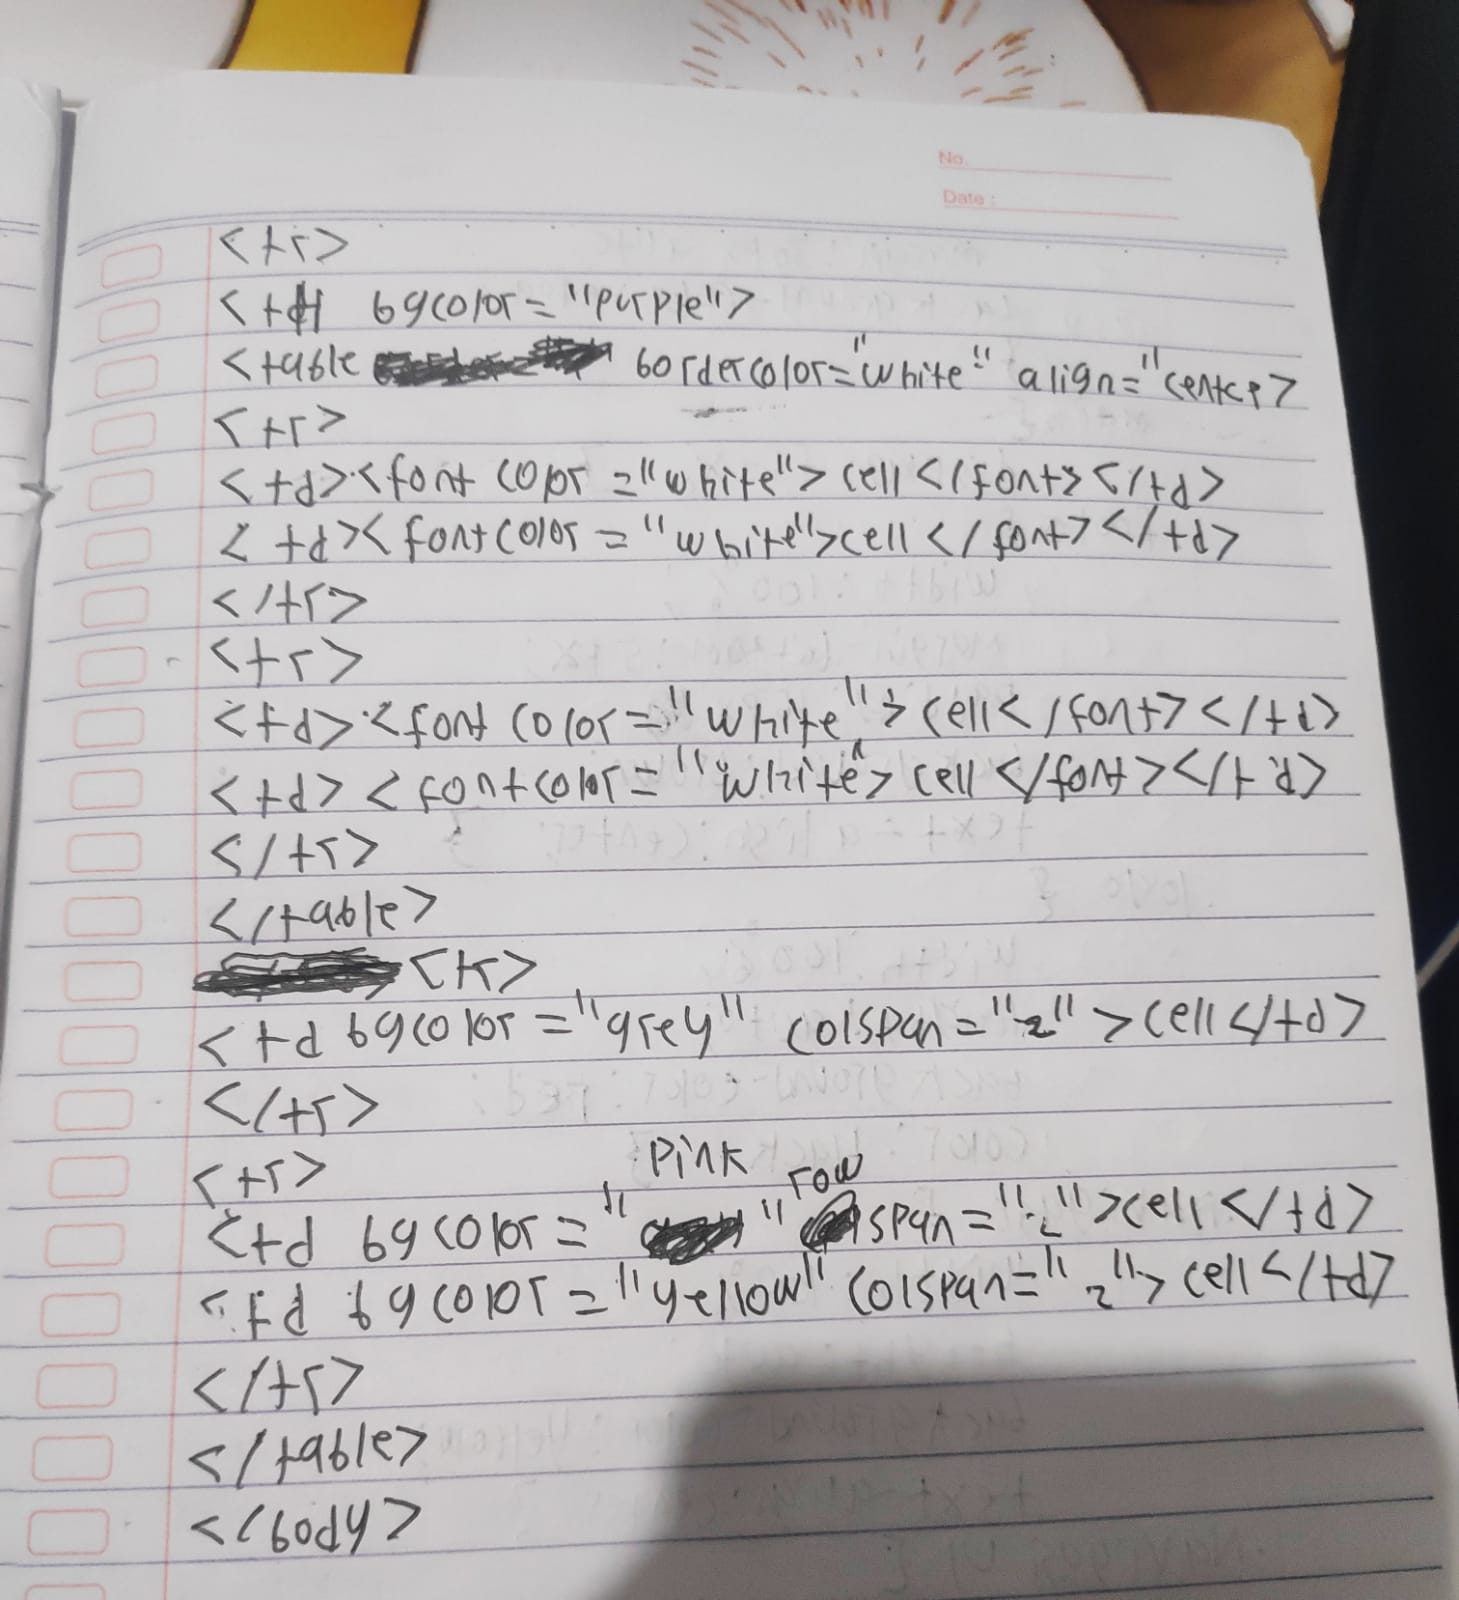 No.
Date :
<tr>
<td bgcolor="purple">
<table bordercolor="white" align="center>
<tr>
<td><font color="white">cell</font></td>
<td><fontcolor="white">cell</font></td>
</tr>
<tr>
<td><font color="white">cell</font></td>
<td><fontcolor="white">cell</font></td>
</tr>
</table>
<tr>
<td bgcolor="grey" colspan="2">cell</td>
</tr>
<tr>
<td bgcolor="pink" rowspan="2">cell</td>
<td bgcolor="yellow" colspan="2">cell</td>
</tr>
</table>
</body>